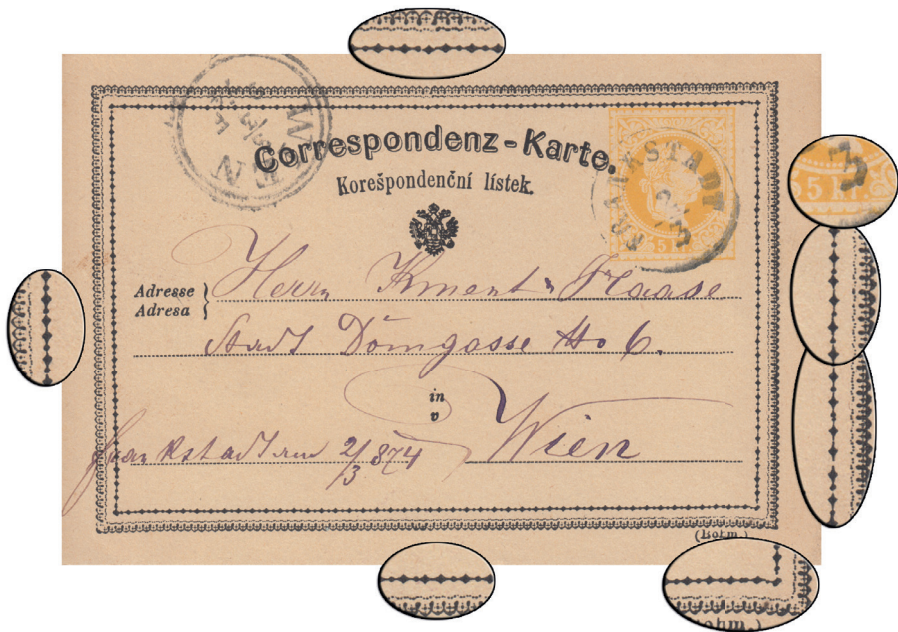 WIEN
Correspondenz-Karte.
FRANKSTADT
Korešpondenční lístek.
5 kr.
Adresse
Adresa
Herrn Kment & Haase
Stadt Domgasse No 6.
in
v
Wien
Frankstadt am 2/3 874
(Böhm.)